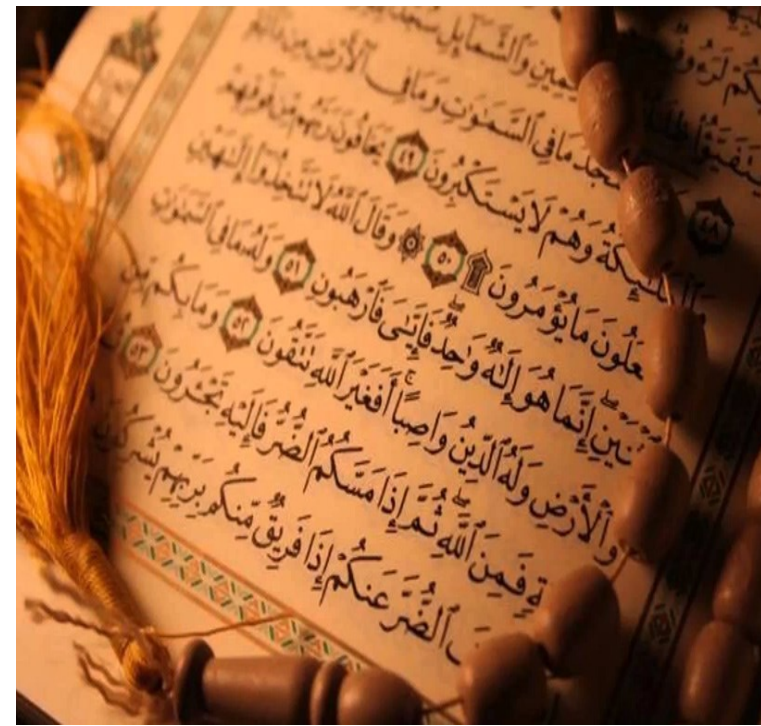 يَتَفَيَّؤُا۟ ٱلْيَمِينِ وَٱلشَّمَآئِلِ
٤٨ يَسْجُدُ مَا فِى ٱلسَّمَٰوَٰتِ وَمَا فِى ٱلْأَرْضِ مِن دَآبَّةٍ
وَٱلْمَلَٰٓئِكَةُ وَهُمْ لَا يَسْتَكْبِرُونَ ٤٩ يَخَافُونَ رَبَّهُم مِّن فَوْقِهِمْ
وَيَفْعَلُونَ مَا يُؤْمَرُونَ ۩ ٥٠ ۞ وَقَالَ ٱللَّهُ لَا تَتَّخِذُوٓا۟ إِلَٰهَيْنِ
ٱثْنَيْنِ ۖ إِنَّمَا هُوَ إِلَٰهٌ وَٰحِدٌ ۖ فَإِيَّٰىَ فَٱرْهَبُونِ ٥١ وَلَهُۥ مَا فِى ٱلسَّمَٰوَٰتِ
وَٱلْأَرْضِ وَلَهُ ٱلدِّينُ وَاصِبًا ۚ أَفَغَيْرَ ٱللَّهِ تَتَّقُونَ ٥٢ وَمَا بِكُم مِّن
فَمِنَ ٱللَّهِ ۖ ثُمَّ إِذَا مَسَّكُمُ ٱلضُّرُّ فَإِلَيْهِ تَجْـَٔرُونَ ٥٣
ٱلضُّرَّ عَنكُمْ إِذَا فَرِيقٌ مِّنكُم بِرَبِّهِمْ يُشْرِكُونَ